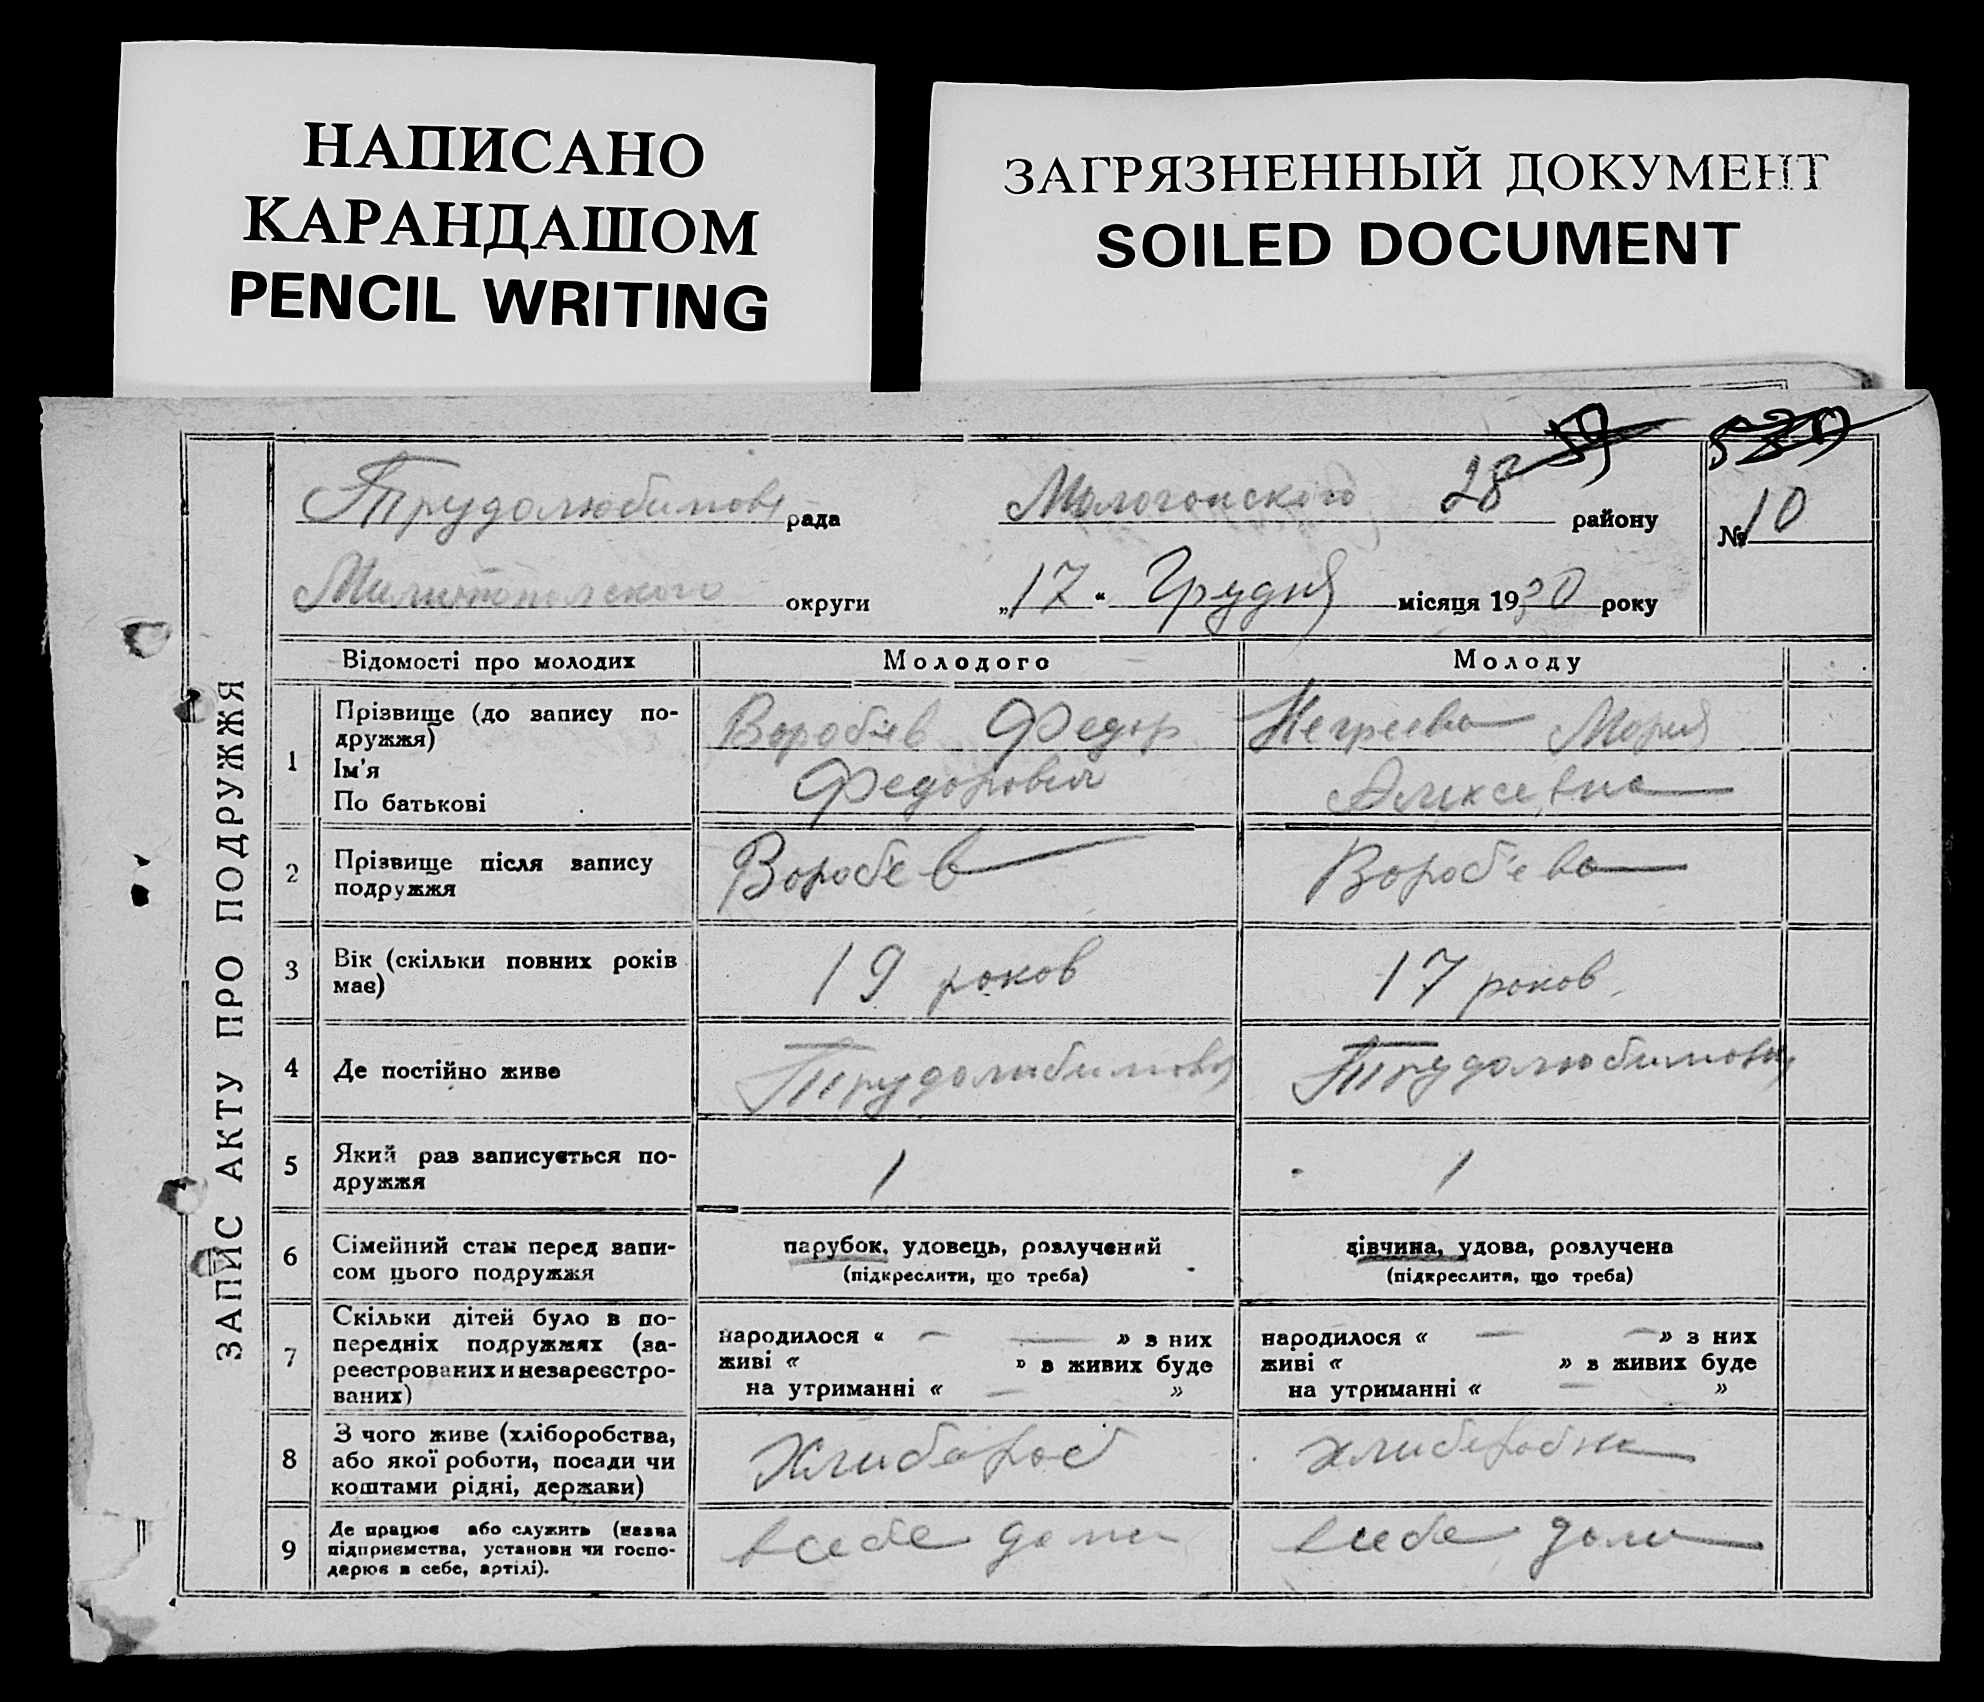 НАПИСАНО
КАРАНДАШОМ
PENCIL WRITING
ЗАГРЯЗНЕННЫЙ ДОКУМЕНТ
SOILED DOCUMENT
59
Трудолюбимовс рада Мологонского 28 району № 10
Милитопольского округи „17“ Грудня місяця 1930 року
ЗАПИС АКТУ ПРО ПОДРУЖЖЯ
Відомості про молодих Молодого Молоду
1 Прізвище (до запису по-
дружжя)
Ім'я
По батькові
Воробєв Федор
Федорович
Негреева Мария
Алексевна
2 Прізвище після запису
подружжя
Вороб'єв Вороб'ева
3 Вік (скільки повних років
має)
19 роков 17 роков
4 Де постійно живе Трудолюбимовка Трудолюбимовка
5 Який раз записується по-
дружжя
1 1
6 Сімейний стан перед запи-
сом цього подружжя
парубок, удовець, розлучений
(підкреслити, що треба)
дівчина, удова, розлучена
(підкреслити, що треба)
7 Скільки дітей було в по-
передніх подружжях (за-
реєстрованих и незареєстро-
ваних)
народилося « — — » з них
живі « » в живих буде
на утриманні « — »
народилося « — — » з них
живі « » в живих буде
на утриманні « — »
8 З чого живе (хліборобства,
або якої роботи, посади чи
коштами рідні, держави)
Хлибороб хлиборобка
9 Де працює або служить (назва
підприємства, установи чи госпо-
дарює в себе, артілі).
в себе дома в себе дома